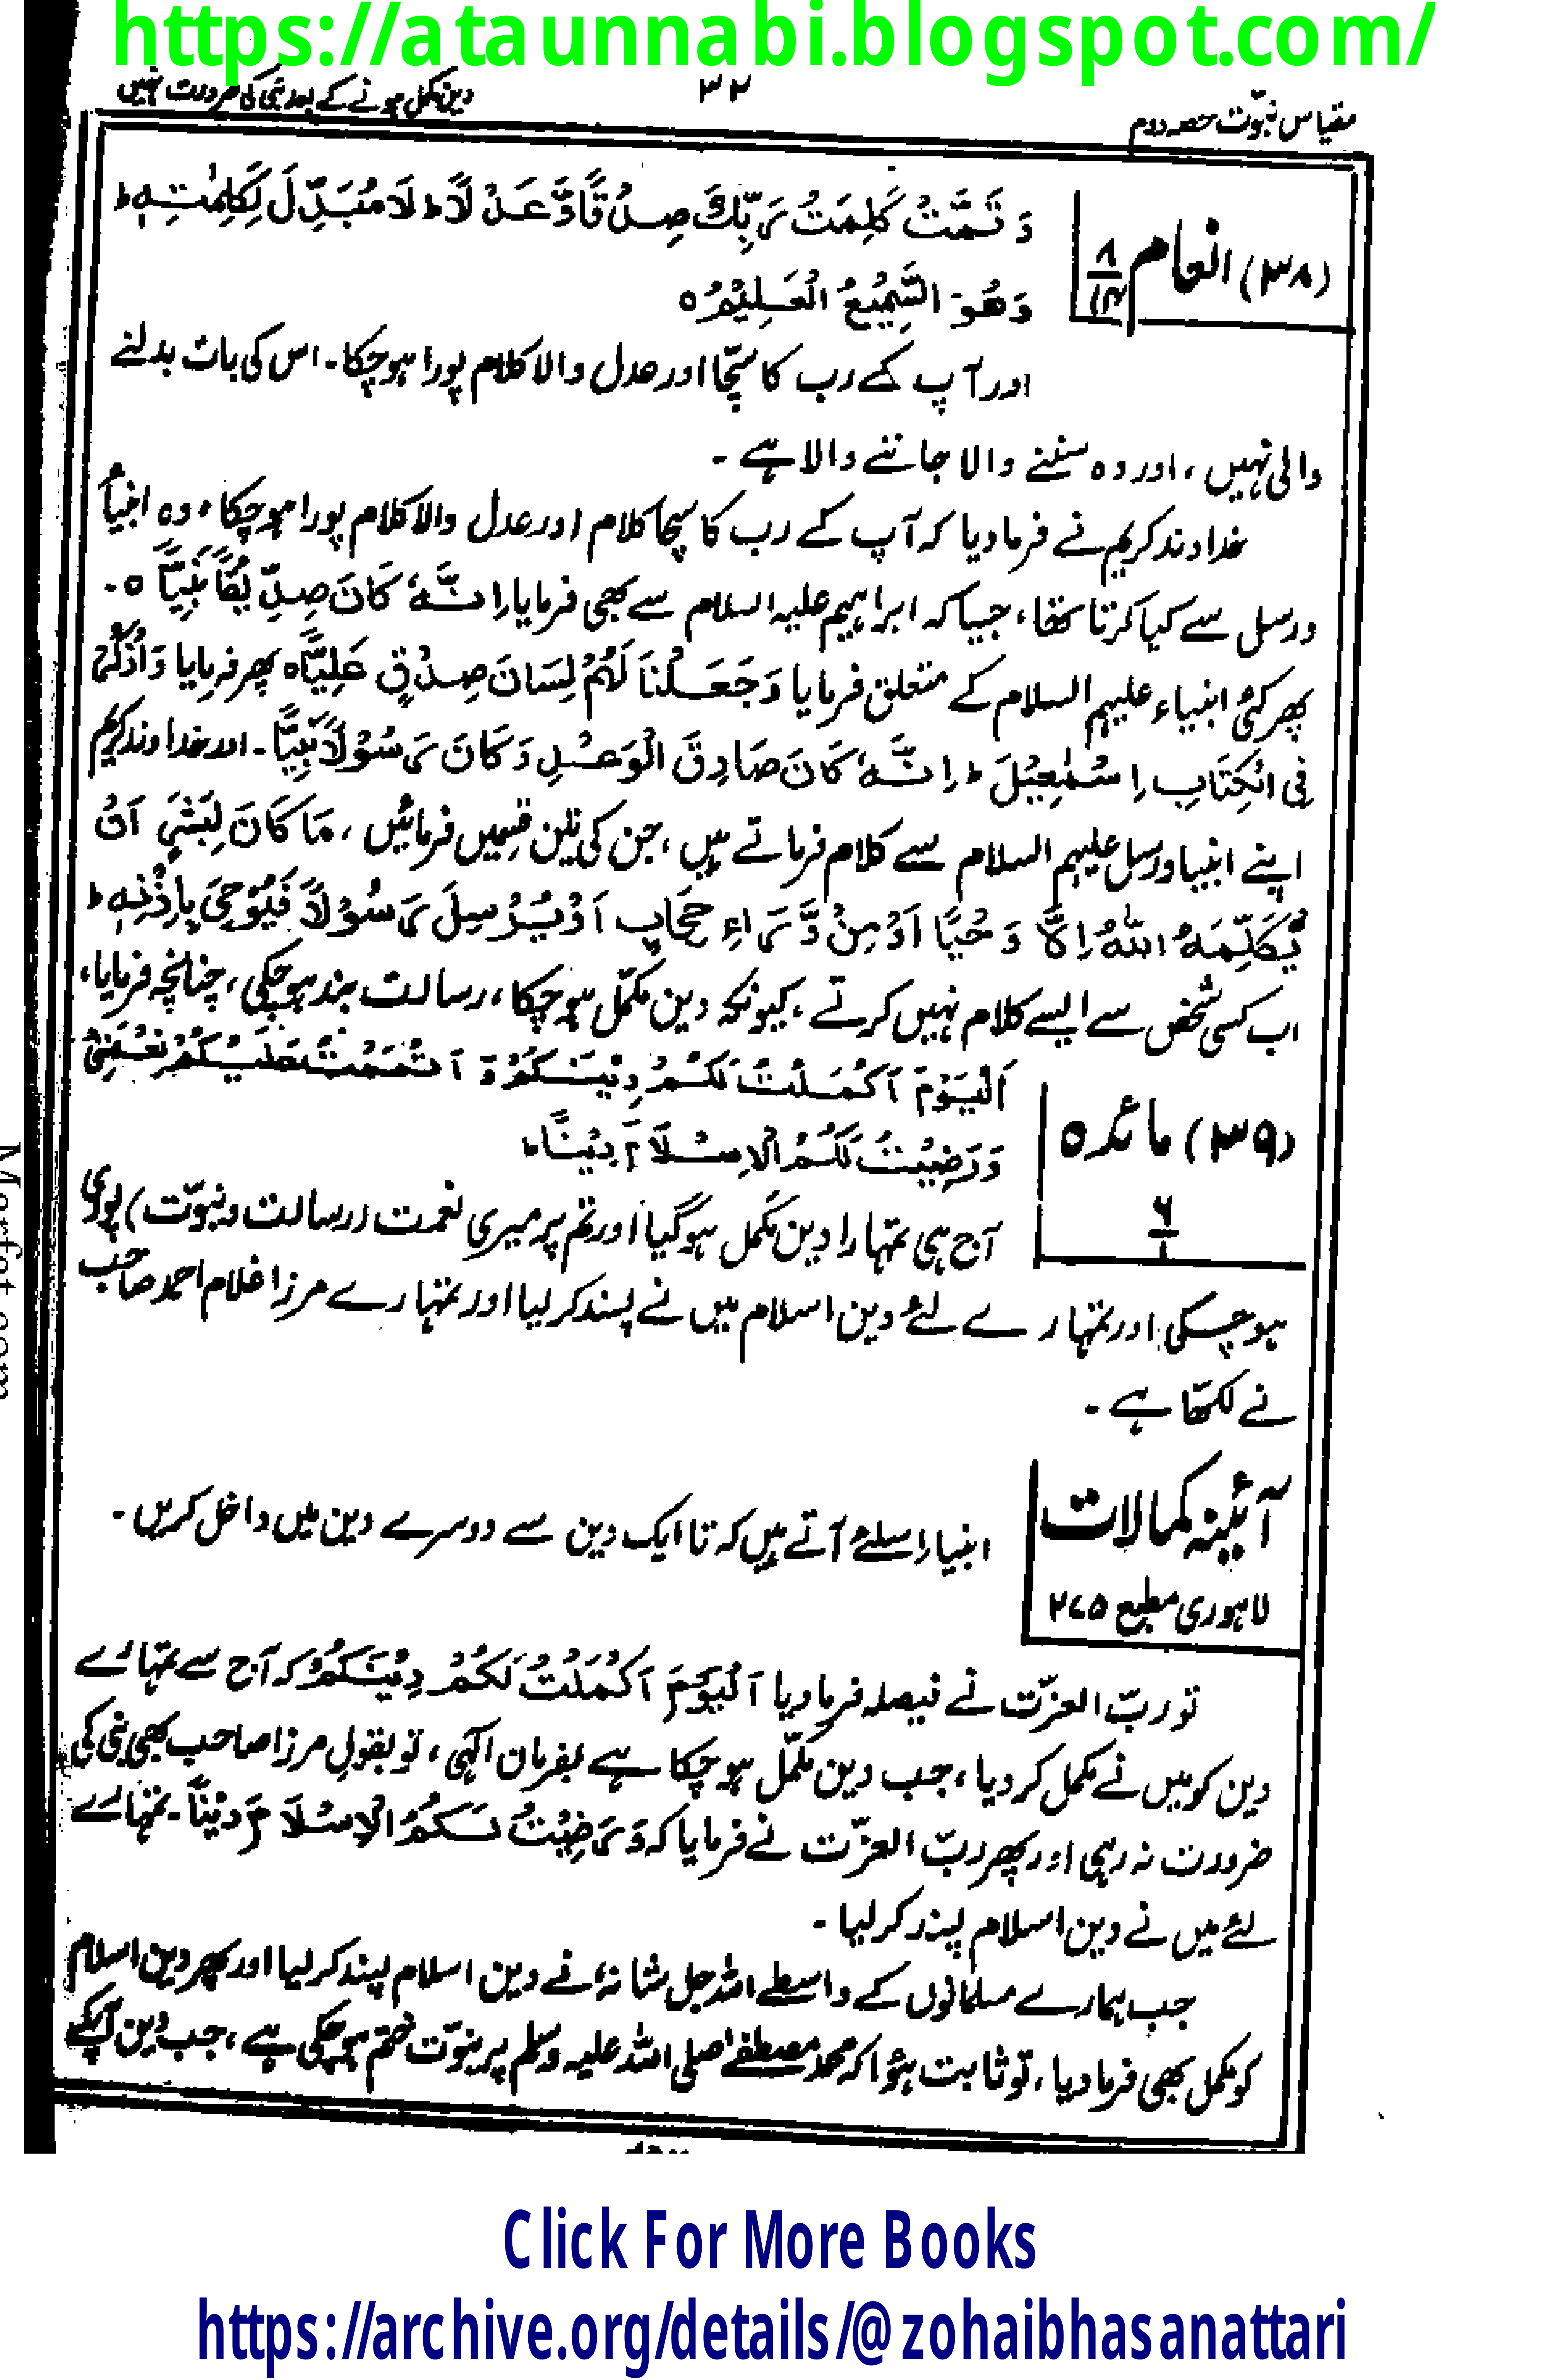 https://ataunnabi.blogspot.com/
مقیاس نبوّت حصہ دوم
۳۲
دین مکمل ہونے کے بعد نبی کی ضرورت نہیں
(۳۸) انعام ۸/۱۴
وَ تَمَّتْ كَلِمَتُ رَبِّكَ صِدْقًا وَّ عَدْلًا ط لَا مُبَدِّلَ لِكَلِمٰتِهٖ ط
وَهُوَ السَّمِيْعُ الْعَلِيْمُ ه
اور آپ کے رب کا سچّا اور عدل والا کلام پورا ہوچکا۔ اس کی بات بدلنے
والی نہیں، اور وہ سننے والا جاننے والا ہے ۔
خداوند کریم نے فرما دیا کہ آپ کے رب کا سچا کلام اور عدل والا کلام پورا ہوچکا، وہ انبیاء
ورسل سے کیا کرتا تھا، جیسا کہ ابراہیم علیہ السلام سے بھی فرمایا اِنَّهٗ كَانَ صِدِّيْقًا نَّبِيًّا ه ۔
پھر کئی انبیاء علیہم السلام کے متعلق فرمایا وَجَعَلْنَا لَهُمْ لِسَانَ صِدْقٍ عَلِيًّا ه پھر فرمایا وَاذْكُرْ
فِى الْكِتَابِ اِسْمٰعِيْلَ ط اِنَّهٗ كَانَ صَادِقَ الْوَعْدِ وَكَانَ رَسُوْلًا نَّبِيًّا۔ اور خداوند کریم
اپنے انبیا ورسل علیہم السلام سے کلام فرماتے ہیں، جن کی تین قسمیں فرمائیں، مَا كَانَ لِبَشَرٍ اَنْ
يُّكَلِّمَهُ اللّٰهُ اِلَّا وَحْيًا اَوْ مِنْ وَّرَاءِ حِجَابٍ اَوْ يُرْسِلَ رَسُوْلًا فَيُوْحِىَ بِاِذْنِهٖ ط
اب کسی شخص سے ایسے کلام نہیں کرتے، کیونکہ دین مکمّل ہوچکا، رسالت بند ہوچکی، چنانچہ فرمایا،
(۳۹) مائدہ ۵ ۶/۱
اَلْيَوْمَ اَكْمَلْتُ لَكُمْ دِيْنَكُمْ وَ اَتْمَمْتُ عَلَيْكُمْ نِعْمَتِىْ
وَرَضِيْتُ لَكُمُ الْاِسْلَامَ دِيْنًا ط
آج ہی تمہارا دین مکمل ہوگیا اور تم پر میری نعمت (رسالت و نبوّت) پوری
ہوچکی اور تمہارے لئے دین اسلام میں نے پسند کر لیا اور تمہارے مرزا غلام احمد صاحب
نے لکھّا ہے ۔
آئینہ کمالات
لاہوری مطبع ۲۷۵
انبیاء اسلئے آتے ہیں کہ تا ایک دین سے دوسرے دین میں داخل کریں ۔
تو ربّ العزّت نے فیصلہ فرما دیا اَلْيَوْمَ اَكْمَلْتُ لَكُمْ دِيْنَكُمْ کہ آج سے تمہارے
دین کو میں نے مکمل کر دیا، جب دین مکمّل ہوچکا ہے بفرمان الٰہی، تو بقول مرزا صاحب بھی نبی کی
ضرورت نہ رہی اور پھر ربّ العزّت نے فرمایا کہ وَرَضِيْتُ لَكُمُ الْاِسْلَامَ دِيْنًا۔ تمہارے
لئے میں نے دین اسلام پسند کر لیا ۔
جب ہمارے مسلمانوں کے واسطے اللہ جل شانہٗ نے دین اسلام پسند کر لیا اور پھر دین اسلام
کو مکمل بھی فرما دیا، تو ثابت ہؤا کہ محمد مصطفےٰ صلی اللہ علیہ وسلم پر نبوّت ختم ہوچکی ہے، جب دین آپکے
Marfat.com
Click For More Books
https://archive.org/details/@zohaibhasanattari